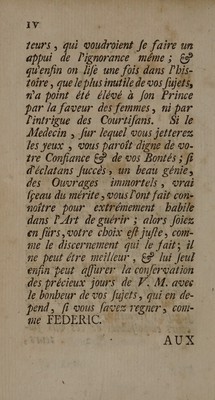 IV
teurs, qui voudroient se faire un
appui de l'ignorance même ; &
qu'enfin on lise une fois dans l'his-
toire, que le plus inutile de vos sujets,
n'a point été élévé à son Prince
par la faveur des femmes, ni par
l'intrigue des Courtisans. Si le
Medecin, sur lequel vous jetterez
les yeux, vous paroît digne de vo-
tre Confiance & de vos Bontés ; si
d'éclatans succès, un beau génie,
des Ouvrages immortels, vrai
sçeau du mérite, vous l'ont fait con-
noître pour extrémement habile
dans l'Art de guérir ; alors soiez
en sûrs, votre choix est juste, com-
me le discernement qui le fait ; il
ne peut être meilleur, & lui seul
enfin peut assurer la conservation
des précieux jours de V. M. avec
le bonheur de vos sujets, qui en dé-
pend, si vous savez regner, com-
me FEDERIC.
AUX